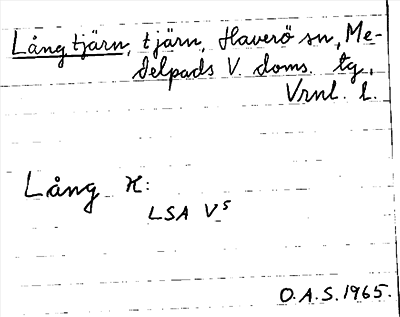 Långtjärn, tjärn, Haverö sn, Me-
delpads V. doms. tg,
Vrnl. l.
Lång tj:
LSA V⁵
O.A.S. 1965.